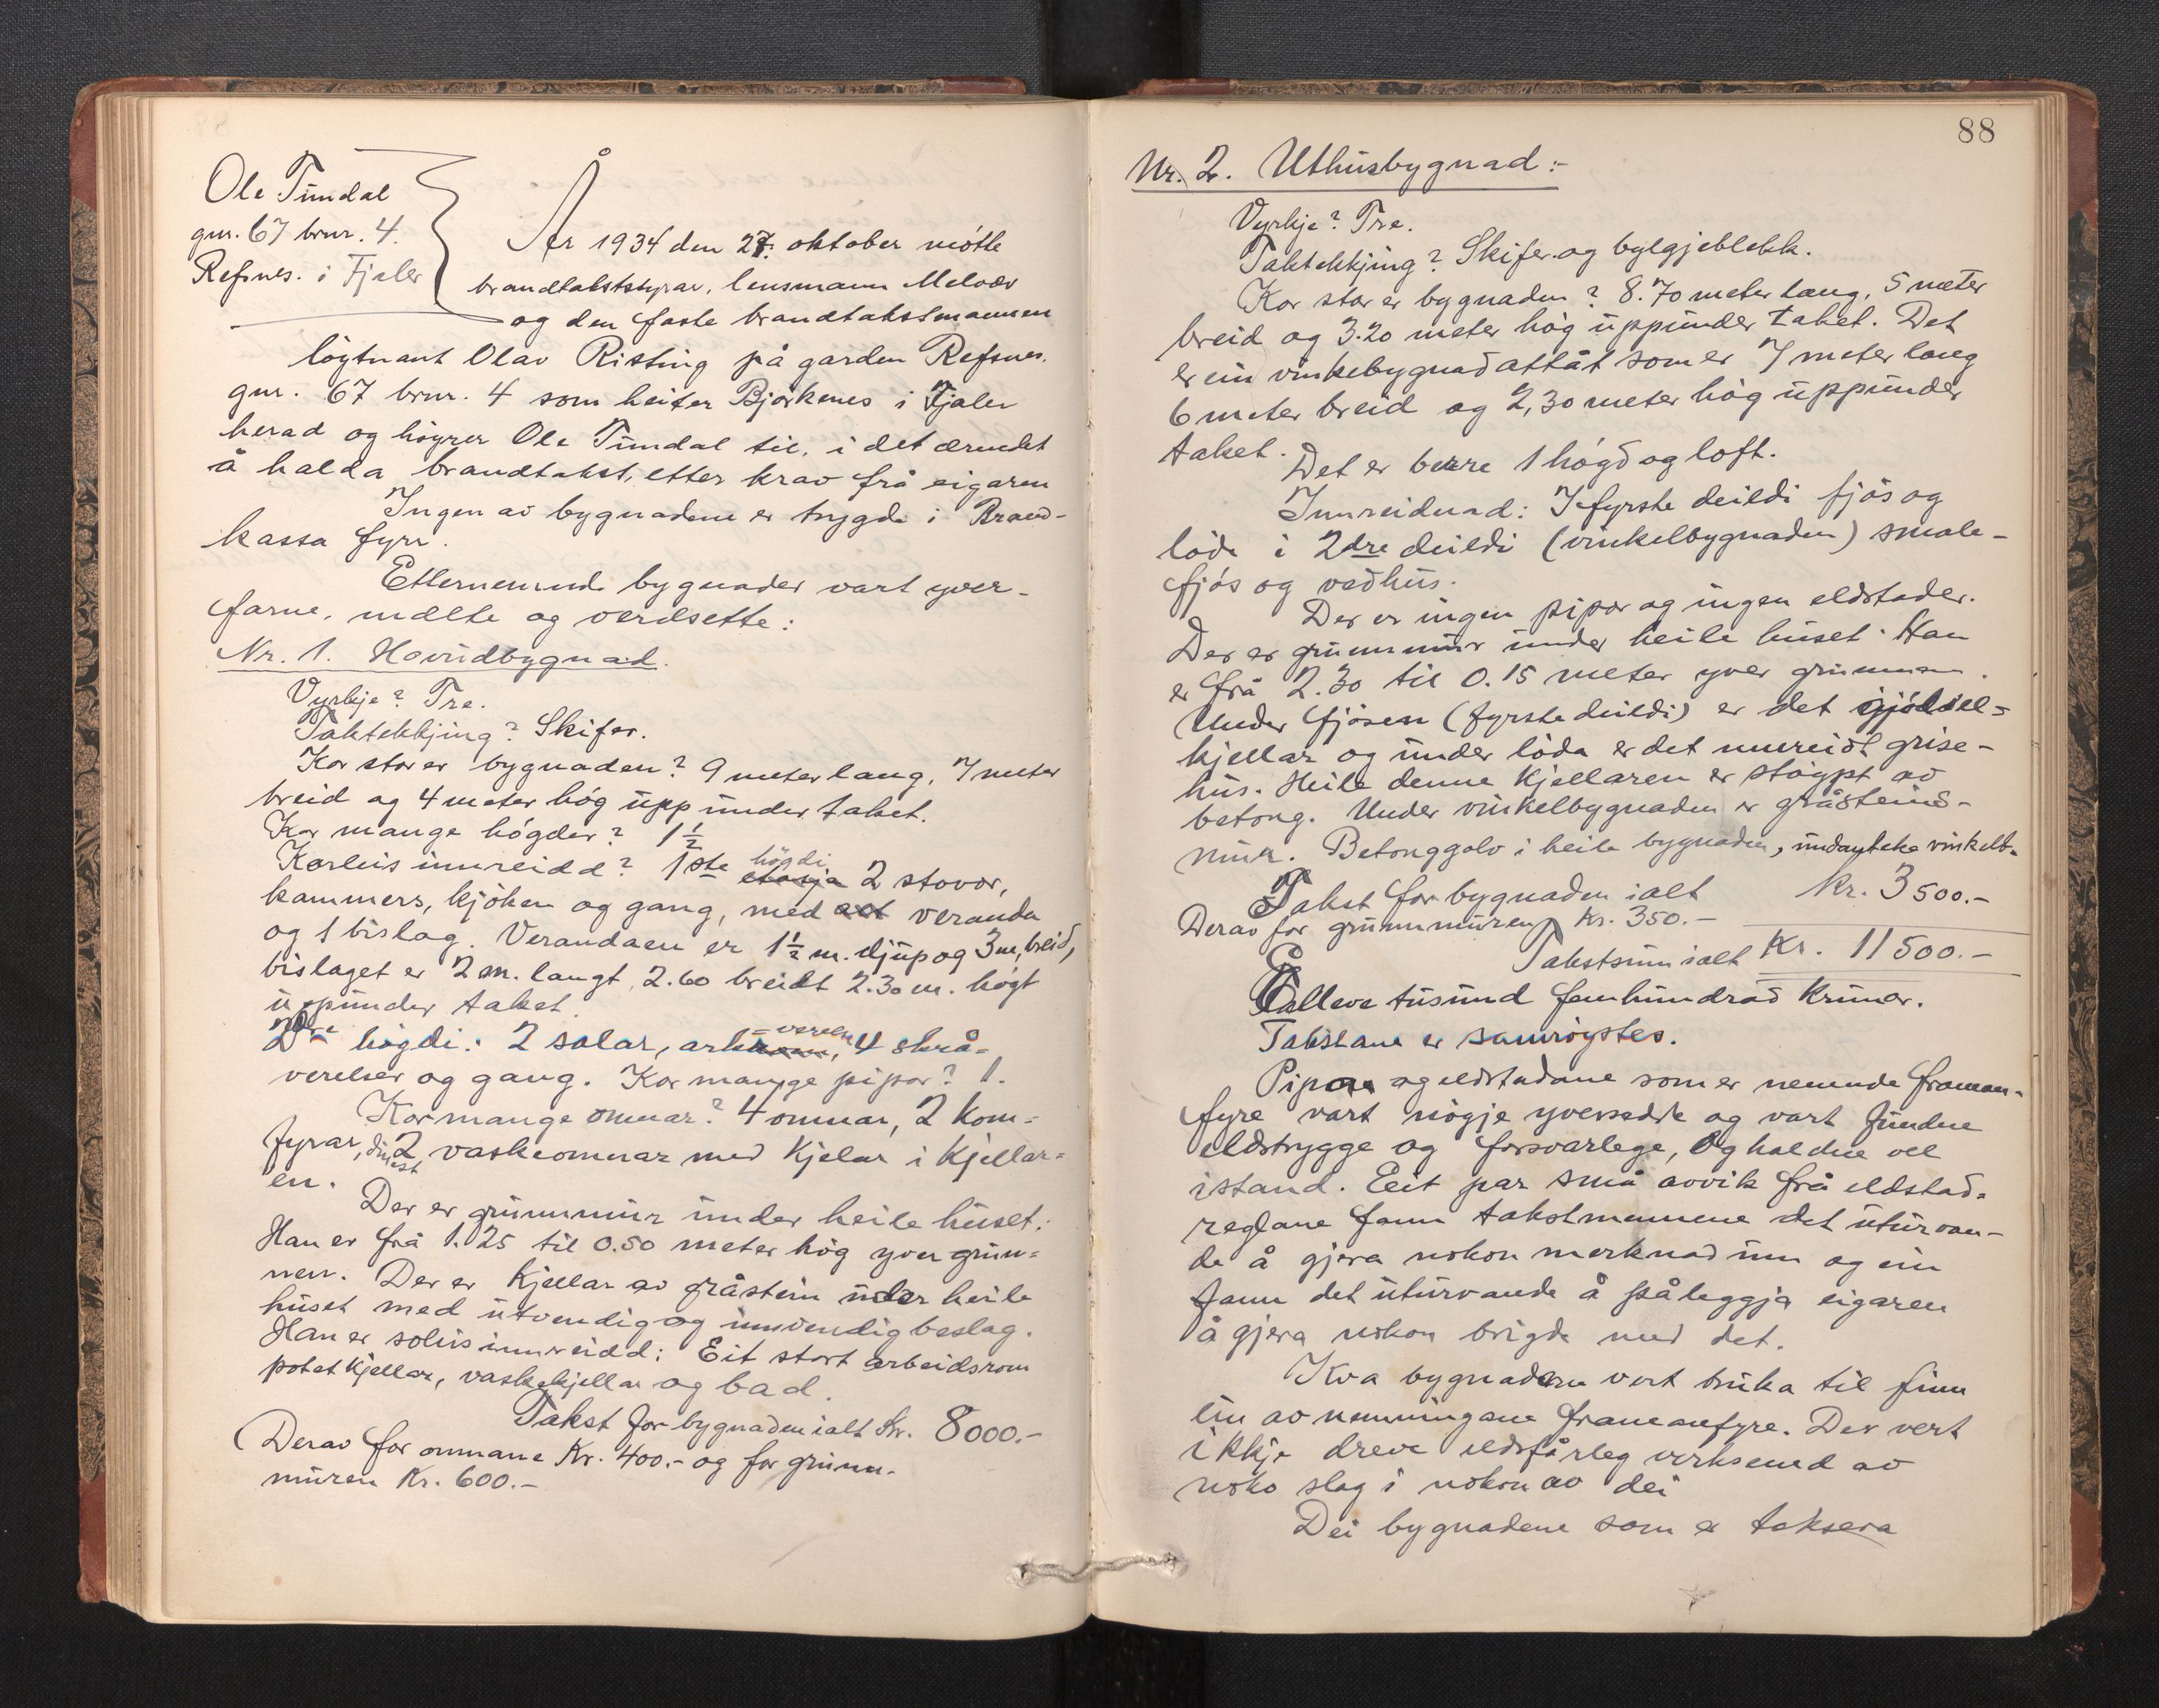 Ole Tundal
gnr. 67 brnr. 4.
Refsnes. i Fjaler
År 1934 den 27. oktober møtte
brandtakststyrar, lensmann Melvær
og den faste brandtakstmannen
løytnant Olav Risting på garden Refsnes.
gnr. 67 brnr. 4 som heiter Bjørkenes i Fjaler
herad og høyrer Ole Tundal til, i det ærendet
å halda brandtakst, etter krav frå eigaren
Ingen av bygnadene er trygde i Brand-
kassa fyrr.
Etternemnde bygnader vart yver-
farne, mælte og verdsette:
Nr. 1. Hovudbygnad.
Vyrkje? Tre.
Taktekkjing? Skifer.
Kor stor er bygnaden? 9 meter lang, 7 meter
breid og 4 meter høg upp under taket.
Kor mange høgder? 1 1/2
Korleis innreidd? 1ste høgdi 2 stovor,
kammers, kjøken og gang, med veranda
og 1 bislag. Verandaen er 1 1/2 m. djup og 3 m, breid,
bislaget er 2 m. langt, 2.60 breidt 2.30 m. høgt
uppunder taket.
2dre høgdi: 2 salar, arkverelse, 4 skrå-
verelser og gang. Kor mange pipor? 1.
Kor mange omnar? 4 omnar, 2 kom-
fyrar, dinest 2 vaskeomnar med Kjelar i Kjellar-
en.
Der er grunnmur under heile huset.
Han er frå 1.25 til 0.50 meter høg yver grun-
nen. Der er Kjellar av gråstein under heile
huset med utvendig og innvendig beslag.
Han er soleis innreidd: Eit stort arbeidsrom
potetkjellar, vaskekjellar og bad.
Takst for bygnaden ialt Kr. 8000.-
Derav for omnane Kr. 400.- og for grunn-
muren Kr. 600.-
88
Nr. 2. Uthusbygnad:-
Vyrkje? Tre.
Taktekkjing? Skifer og bylgjeblekk.
Kor stor er bygnaden? 8.70 meter lang, 5 meter
breid og 3.20 meter høg uppunder taket. Det
er ein vinkebygnad attåt som er 7 meter lang
6 meter breid og 2,30 meter høg uppunder
taket.
Det er berre 1 høgd og loft.
Innreidnad: I fyrste deildi fjøs og
løde i 2dre deildi (vinkelbygnaden) smale-
fjøs og vedhus.
Der er ingen pipor og ingen eldstader.
Der er grunnmur under heile huset. Han
er frå 2.30 til 0.15 meter yver grunnen.
Under fjøsen (fyrste deildi) er det gjødsel-
kjellar og under løda er det innreidt grise-
hus. Heile denne Kjellaren er støypt av
betong. Under vinkelbygnaden er gråsteins-
mur. Betonggolv i heile bygnaden, undanteke vinkelb.
Takst for bygnaden ialt Kr. 3500.-
Derav for grunnmuren Kr. 350.-
Takstsum ialt Kr. 11500.-
Elleve tusund femhundrad Krunor.
Takstane er samrøystes.
Pipone og eldstadane som er nemnde framan-
fyre vart nøgje yversedde og vart fundne
eldstrygge og forsvarlege, og haldne vel
istand. Eit par små avvik frå eldstad-
reglane fann takstmennene det uturvan-
de å gjera nokon merknad um og ein
fann det uturvande å påleggja eigaren
å gjera nokon brigde med det.
Kva bygnadene vert bruka til finn
ein av nemningane framanfyre. Der vert
ikkje dreve eldsfårleg verksemd av
noko slag i nokon av dei
Dei bygnadene som er taksera